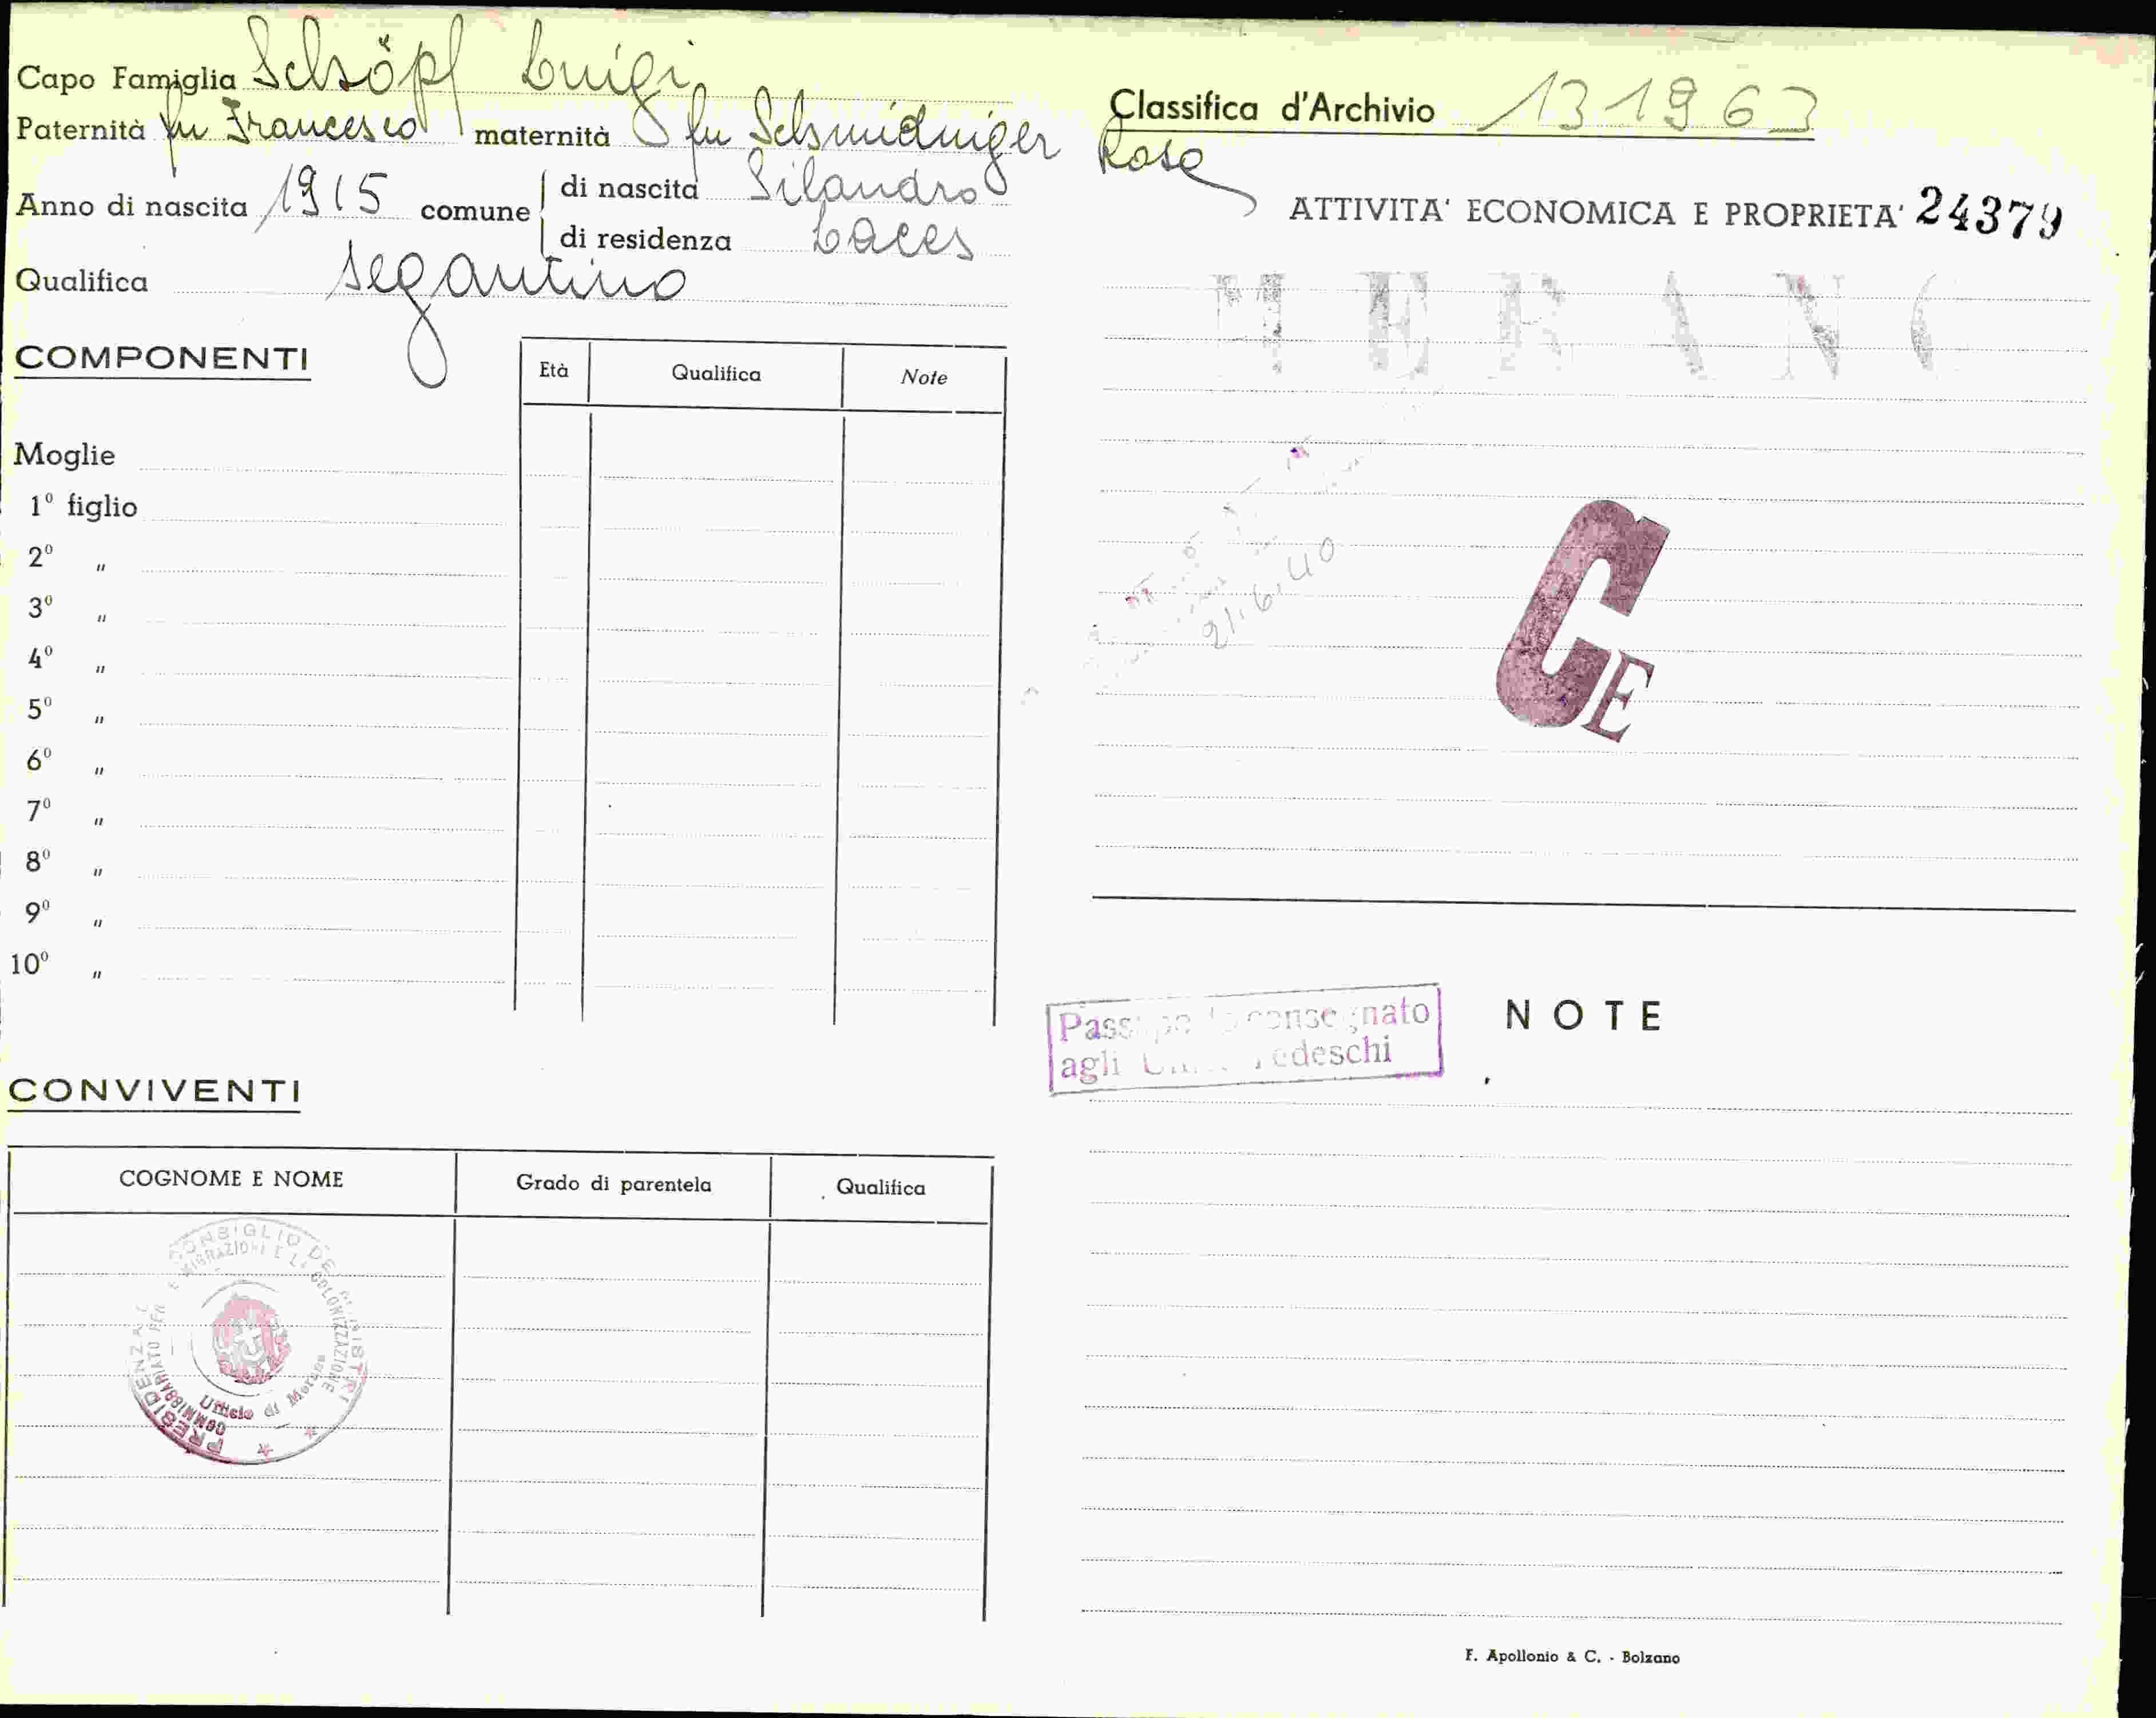 Capo Famiglia Schöpf Luigi
Paternità fu Francesco maternità fu Schmidniger Rosa
Anno di nascita 1915 comune di nascita Silandro
di residenza Laces
Qualifica segantino
COMPONENTI
Età Qualifica Note
Moglie
1º figlio
2º "
3º "
4º "
5º "
6º "
7º "
8º "
9º "
10º "
CONVIVENTI
COGNOME E NOME Grado di parentela Qualifica
PRESIDENZA CONSIGLIO DEI MINISTRI
COMMISSARIATO PER E MIGRAZIONI E LA COLONIZZAZIONE
Ufficio di Merano
Classifica d'Archivio 131963
ATTIVITA' ECONOMICA E PROPRIETA' 24379
MERANO
21.6.40
CE
Passaporto consegnato
agli Uff. Tedeschi
NOTE
F. Apollonio & C. - Bolzano